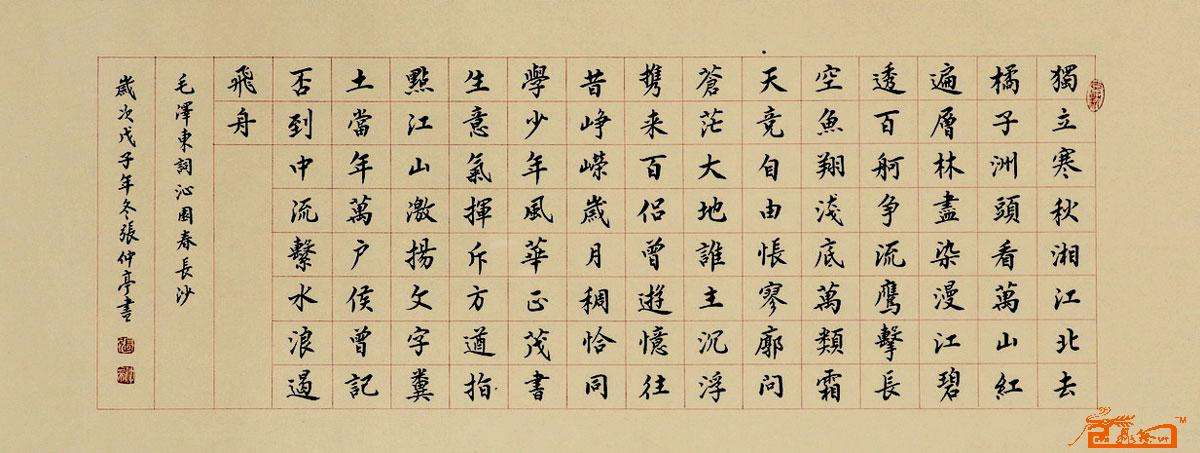 獨立寒秋湘江北去
橘子洲頭看萬山紅
遍層林盡染漫江碧
透百舸争流鹰擊長
空魚翔淺底萬類霜
天竞自由悵寥廓問
蒼茫大地誰主沉浮
携来百侣曾遊憶往
昔峥嵘歲月稠恰同
學少年風華正茂書
生意氣揮斥方遒指
點江山激揚文字糞
土當年萬户侯曾記
否到中流擊水浪遏
飛舟
毛澤東詞沁園春長沙
歲次戊子年冬張仲亭書